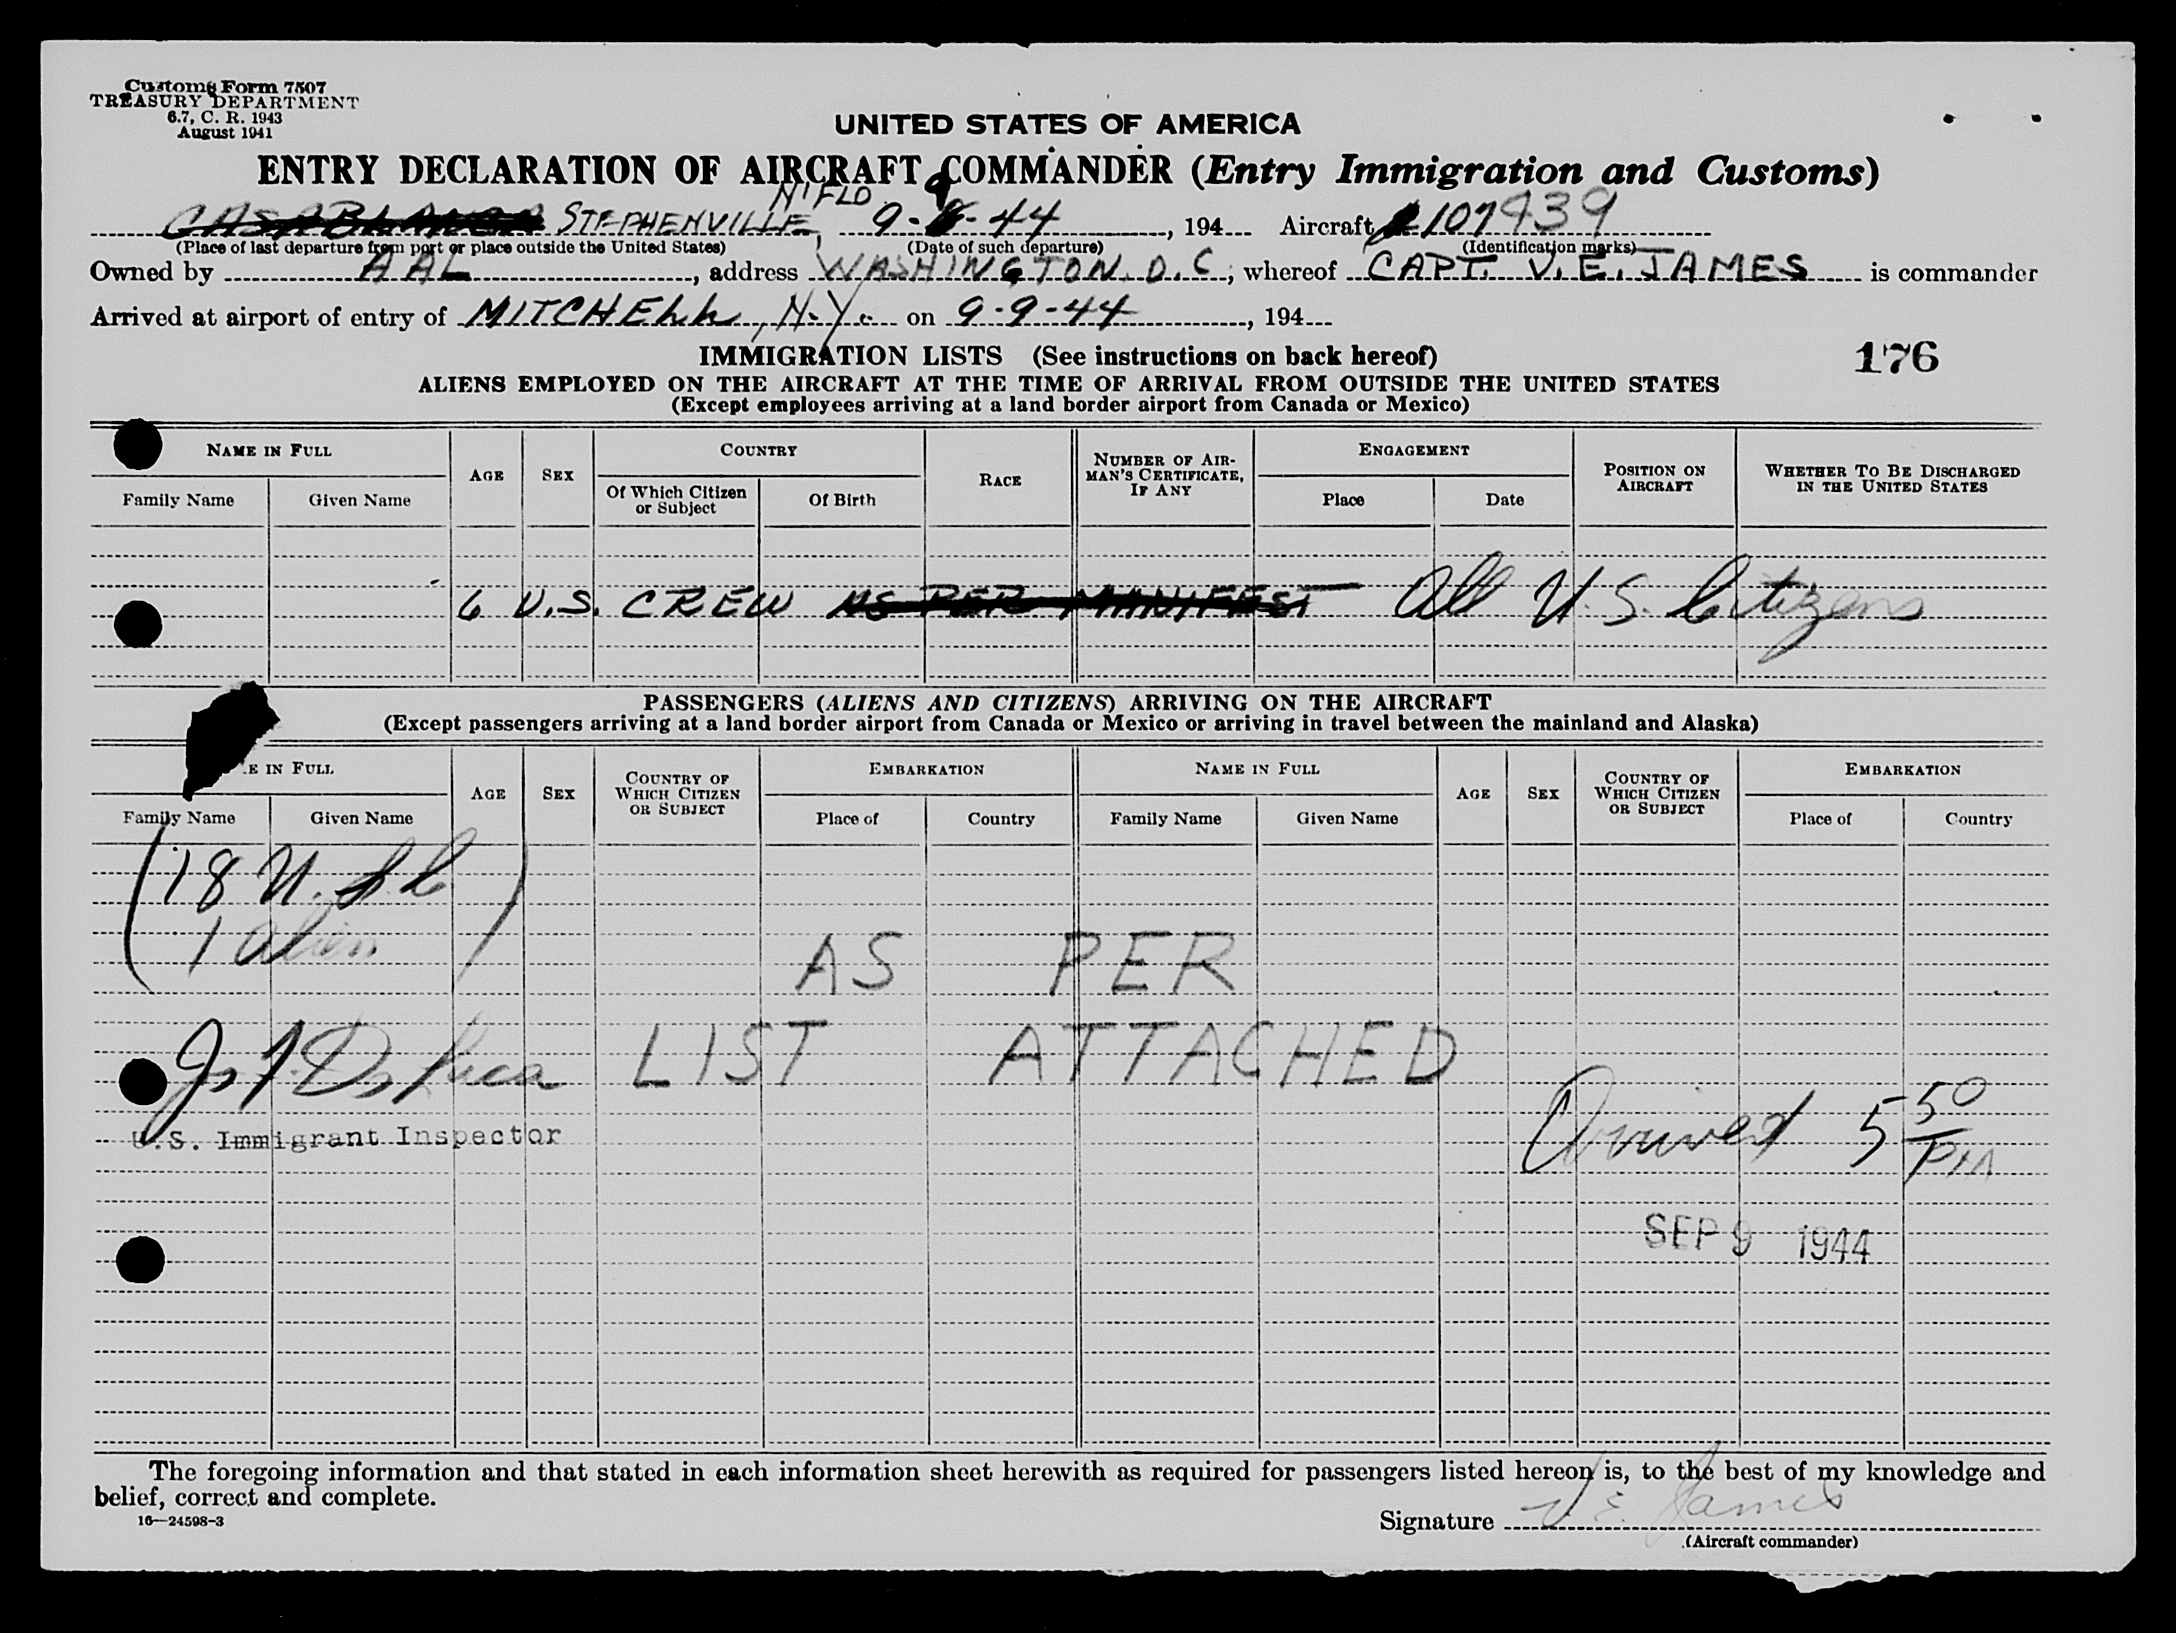 Customs Form 7507
TREASURY DEPARTMENT
6.7, C. R. 1943
August 1941
UNITED STATES OF AMERICA
ENTRY DECLARATION OF AIRCRAFT COMMANDER (Entry Immigration and Customs)
N'FLD. 9
CASABLANCA STEPHENVILLE, 9-8-44, 194 Aircraft 107939
(Place of last departure from port or place outside the United States) (Date of such departure) (Identification marks)
Owned by AAL, address WASHINGTON, D.C.; whereof CAPT. V. E. JAMES is commander
Arrived at airport of entry of MITCHELL, N.Y. on 9-9-44, 194
IMMIGRATION LISTS (See instructions on back hereof) 176
ALIENS EMPLOYED ON THE AIRCRAFT AT THE TIME OF ARRIVAL FROM OUTSIDE THE UNITED STATES
(Except employees arriving at a land border airport from Canada or Mexico)
NAME IN FULL AGE SEX COUNTRY RACE NUMBER OF AIRMAN'S CERTIFICATE, IF ANY ENGAGEMENT POSITION ON AIRCRAFT WHETHER TO BE DISCHARGED IN THE UNITED STATES
Family Name Given Name Of Which Citizen or Subject Of Birth Place Date
6 U.S. CREW AS PER MANIFEST All U.S. Citizens
PASSENGERS (ALIENS AND CITIZENS) ARRIVING ON THE AIRCRAFT
(Except passengers arriving at a land border airport from Canada or Mexico or arriving in travel between the mainland and Alaska)
E IN FULL AGE SEX COUNTRY OF WHICH CITIZEN OR SUBJECT EMBARKATION NAME IN FULL AGE SEX COUNTRY OF WHICH CITIZEN OR SUBJECT EMBARKATION
Family Name Given Name Place of Country Family Name Given Name Place of Country
(18 U.S.C
1 alien)
AS PER
LIST ATTACHED
Arrived 5 50 PM
U.S. Immigrant Inspector
SEP 9 1944
The foregoing information and that stated in each information sheet herewith as required for passengers listed hereon is, to the best of my knowledge and
belief, correct and complete.
16—24598-3
Signature V E James
(Aircraft commander)